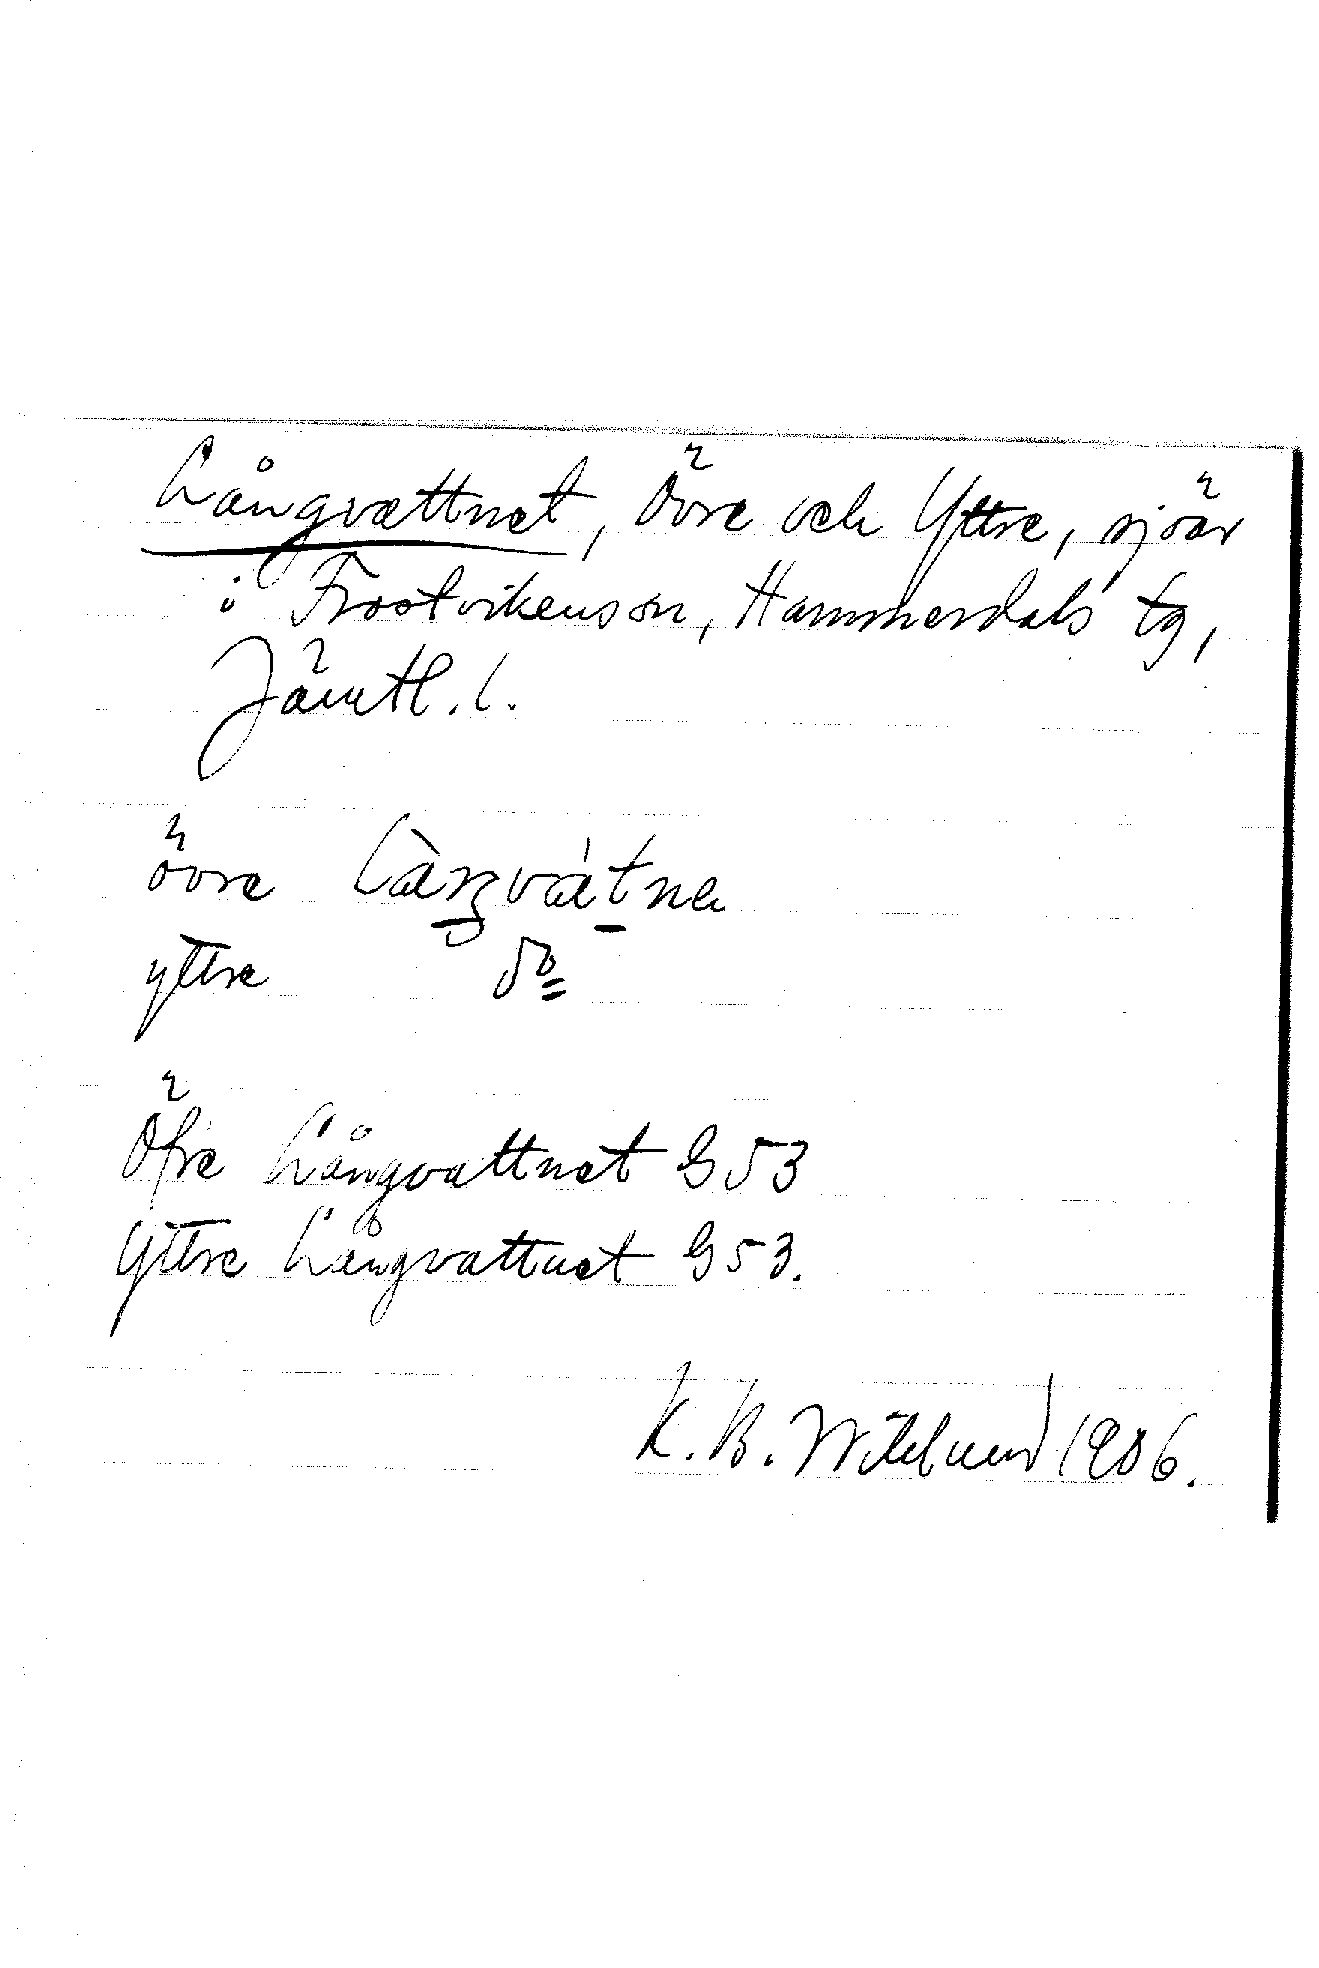 Långvattnet, Övre och Yttre, sjöar
i Frostvikens sn, Hammerdals tg,
Jämtl. l.
övre Làŋvátna
yttre do
Öfre Långvattnet G 53
Yttre Långvattnet G 53.
K. B. Wiklund 1906.